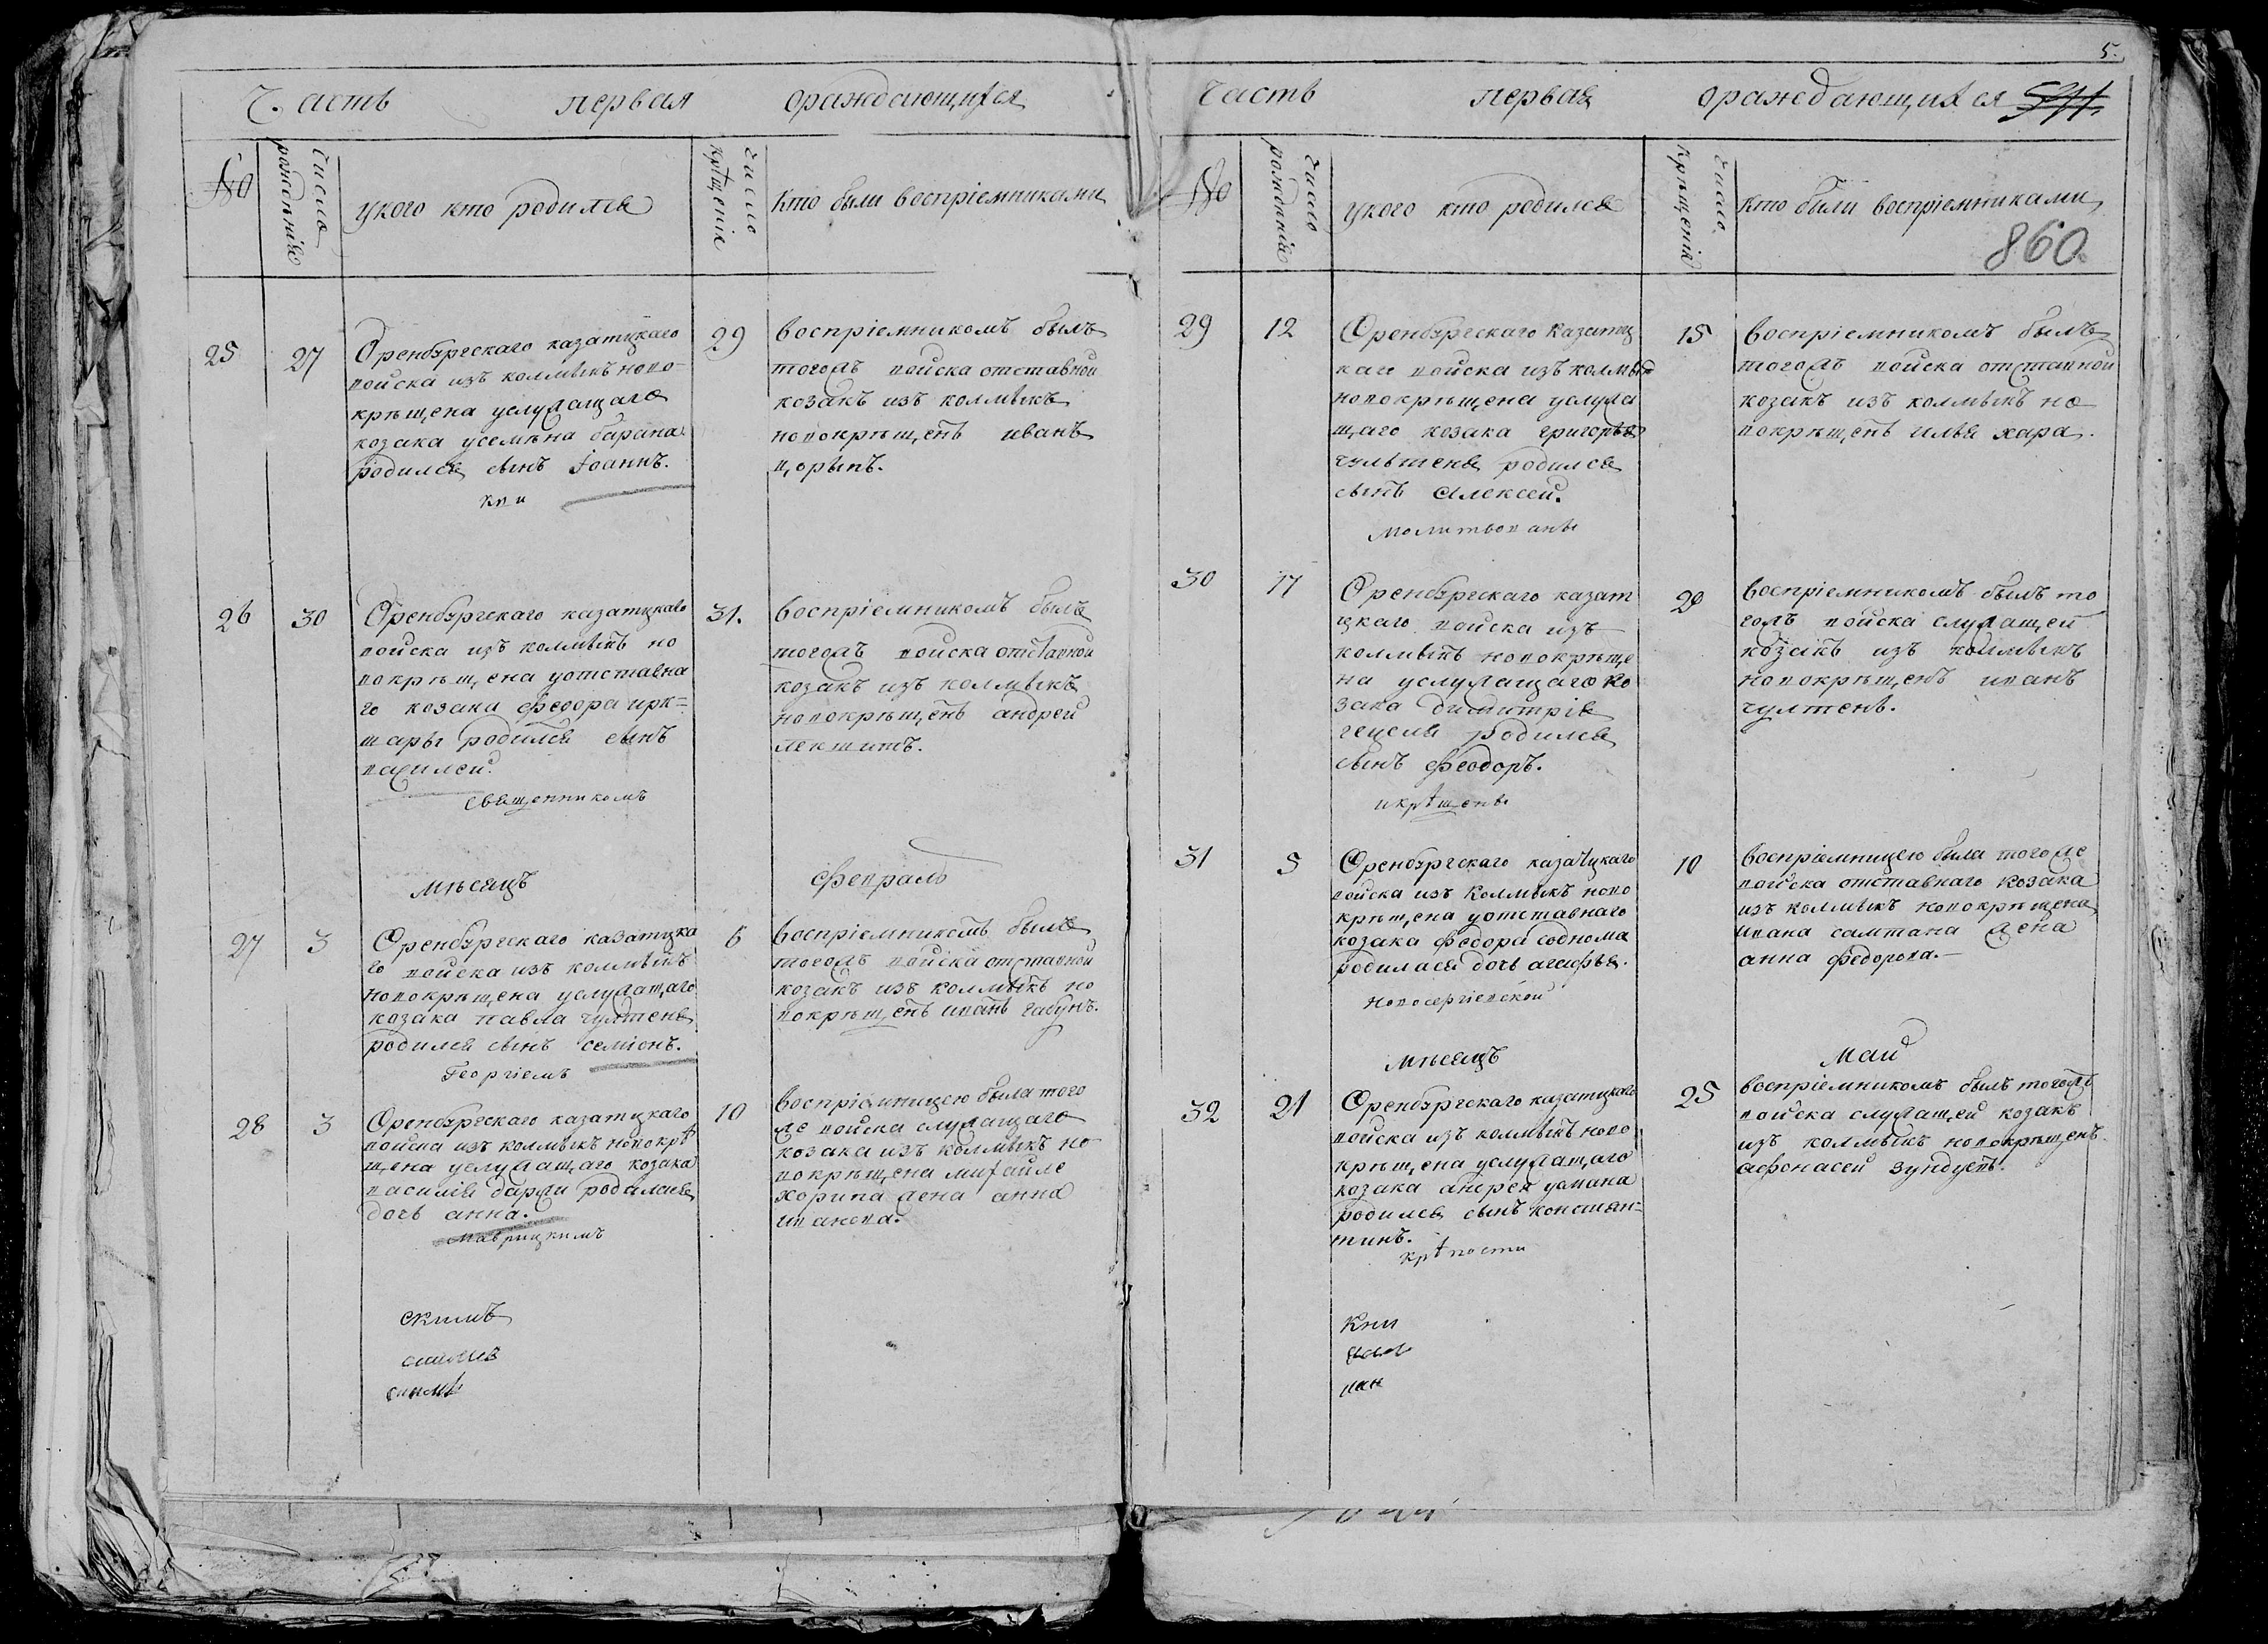 5.
Часть первая ораждающихся
№
Число рождѣнія
укого кто родился
Число крѣщенія
кто были воспріемниками
25
27
Оренбургскаго казатцкаго
войска изъ колмыкъ ново-
крѣщена услужащаго
козака усемѣна барана
родился сынъ Іоаннъ.
кни
29
воспріемникомъ былъ
тогожъ войска отставной
козакъ изъ колмыкъ
новокрѣщенъ иванъ
цорывъ.
26
30
Оренбургскаго казатцкаго
войска изъ колмыкъ но
вокрѣщена уотставна
го козака Федора
родился сынъ
василей.
священникомъ
31.
воспріемникомъ былъ
тогожъ войска отставной
козакъ изъ колмыкъ
новокрѣщенъ андрей
мѣсяцъ февраль
27
3
Оренбургскаго казатцка
го войска изъ колмыкъ
новокрѣщена услужащаго
козака павла чултеня
родился сынъ семіонъ.
Георгіемъ
6
воспріемникомъ былъ
тогожъ войска отставной
козакъ изъ колмыкъ но
вокрѣщенъ иванъ габунъ.
28
3
Оренбургскаго казатцкаго
войска изъ колмыкъ новокрѣ
щена услужащаго козака
василія даржи родилась
дочь анна.
маврицкимъ
10
воспріемницею была того
же войска служащаго
козака изъ колмыкъ но
вокрѣщена михайле
хорива жена анна
иванова.
скимъ
скимъ
Часть первая ораждающихся
№
Число рожденія
укого кто родился
Число крѣщенія
кто были воспріемниками
860
29
12
Оренбургскаго казатц
каго войска изъ колмык
новокрѣщена услужа
щаго козака григорья
чультеня родился
сынъ Алексей.
молитвованы
15
воспріемникомъ былъ
тогожъ войска отставной
козакъ изъ колмыкъ но
вокрѣщенъ илья хара.
30
17
Оренбургскаго казат
цкаго войска изъ
колмыкъ новокрѣще
на услужащаго ко
зака димитрія
гецеля родился
сынъ Феодоръ.
икрѣщены
20
воспріемникомъ былъ то
гожъ войска служащей
козакъ изъ колмыкъ
новокрѣщенъ иванъ
чултенъ.
31
5
Оренбургскаго казатцкаго
войска изъ колмыкъ ново
крѣщена уотставнаго
козака Федора соднома
родилася дочь агафья.
новосергіевской
10
воспріемницею была тогоже
войска отставнаго козака
изъ колмыкъ новокрѣщена
ивана салтана жена
анна федорова.
мѣсяцъ май
32
21
Оренбургскаго казатцкаго
войска изъ колмыкъ ново
крѣщена услужащаго
козака анрея усмана
родился сынъ констан-
тинъ.
крѣпости
25
воспріемникомъ былъ тогожъ
войска служащей козакъ
изъ колмыкъ новокрѣщенъ
афонасей зундуевъ.
кни